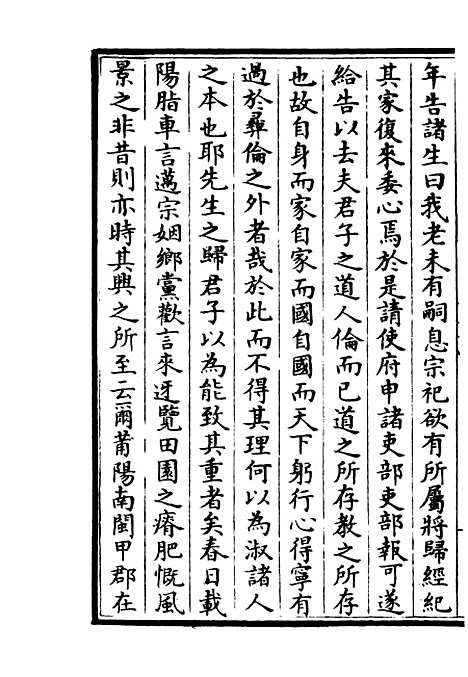 年告諸生曰我老未有嗣息宗祀欲有所屬將歸經紀
其家復來委心焉於是請使府申諸吏部吏部報可遂
給告以去夫君子之道人倫而已道之所存教之所存
也故自身而家自家而國自國而天下躬行心得寧有
過於彞倫之外者哉於此而不得其理何以為淑諸人
之本也耶先生之歸君子以為能致其重者矣春日載
陽脂車言邁宗姻鄉黨歡言來迓覽田園之瘠肥慨風
景之非昔則亦時其興之所至云爾莆陽南閩甲郡在